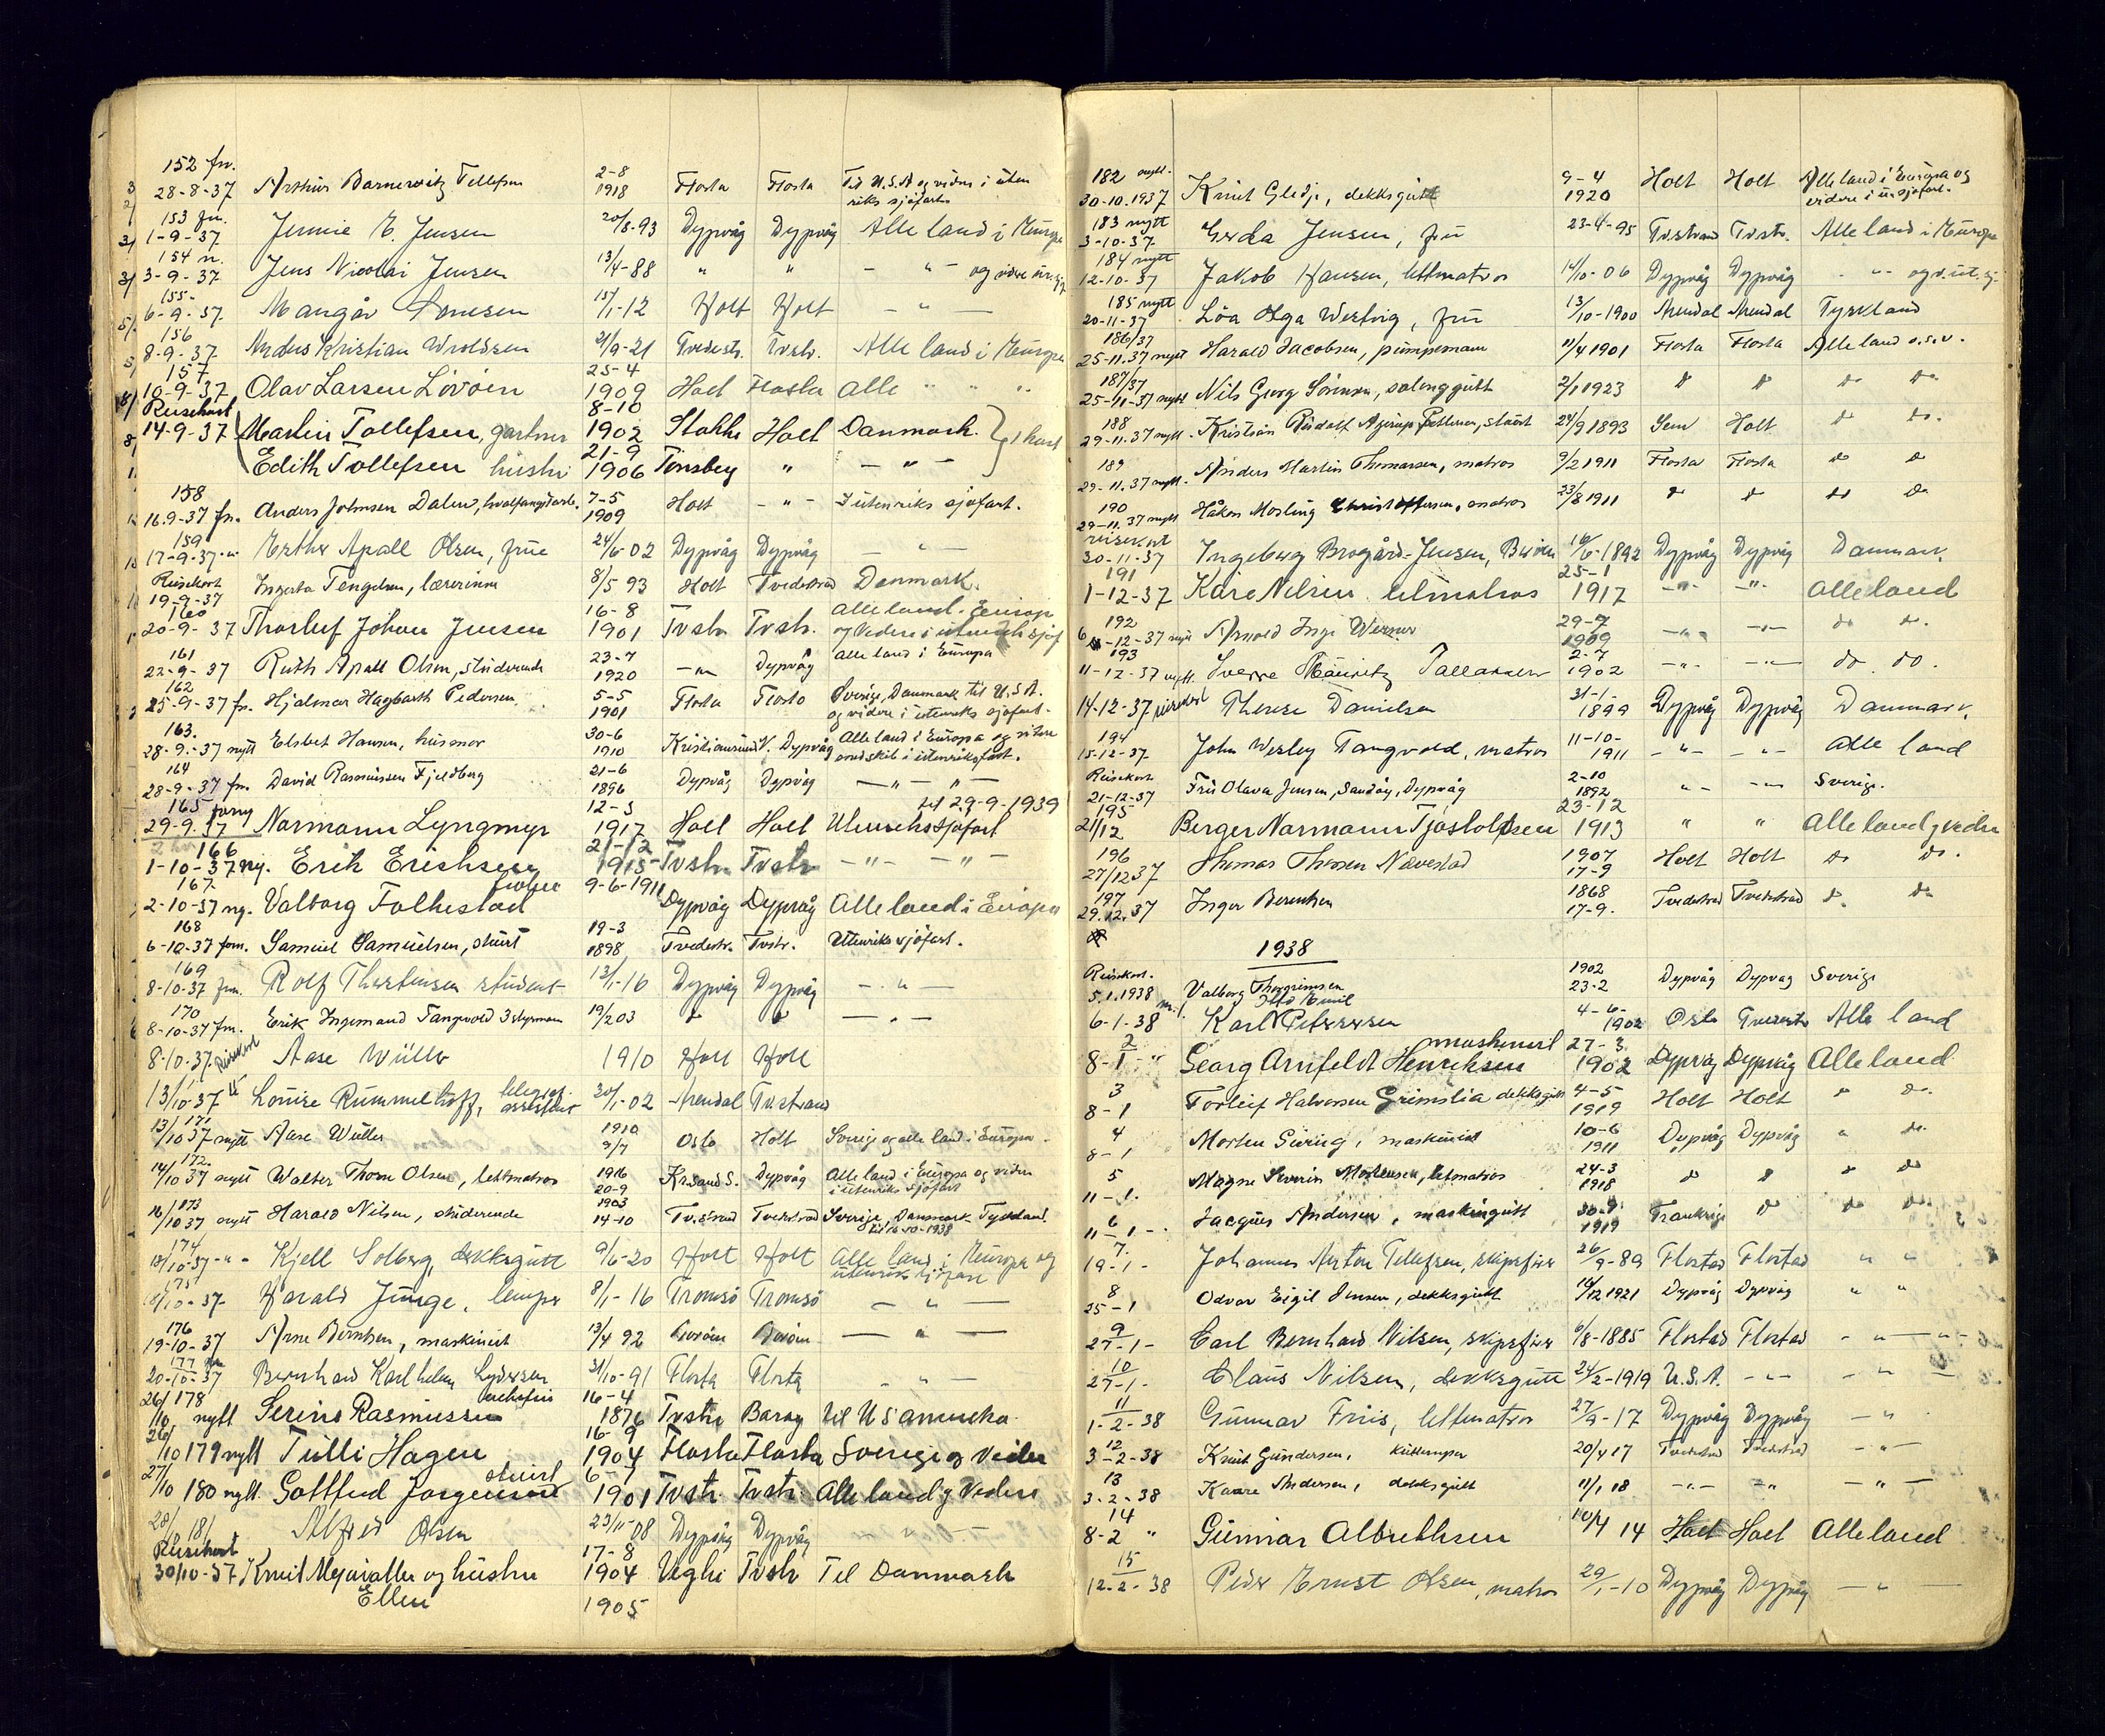 152 fn.
28-8-37 Arthur Barnerwitz Tellefsen 2-8 1918 Flosta Flosta Til U.S.A og videre i uten
riks sjøfart.
153 fn.
1-9-37 Jennie E. Jensen 20/8-93 Dypvåg Dypvåg Alle land i Europa
154 n.
3-9-37 Jens Nicolai Jensen 13/4-88 " " - " - og videre
155-
6-9-37. 15/1-12 Holt Holt - " -
156
8-9-37 Anders Kristian Wroldsen 21/9-21 Tvedestr. Tvstr. Alle land i Europa
157
10-9-37 Olav Larsen Lövöen 25-4 1909 Holt Flosta Alle " " "
Reisekort
14-9-37 Martin Tollefsen, gartner 8-10 1902 Stokke Holt Danmark. } 1 kort
Edith Tollefsen hustru 21-9 1906 Tönsberg " - " -
158
16.9-37 fn. Anders Johnsen Dalen, hvalfangstarb. 7-5 1909 Holt - " - I utenriks sjøfart.
159
17-9-37 -"- Esther Apall Olsen, frue 24/6-02 Dypvåg Dypvåg - " -
Reisekort
19-9-37 Ingerta Tengelsen, lærerinne 8/5 93 Holt Tvedestrand Danmark.
160
20-9-37 Thorleif Johan Jensen 16-8 1901 Tvstr Tvstr. Alle land i Europa
og videre i utenriks sjøf
161
22-9-37 Ruth Apall Olsen, studerende 23-7 1920 -"- Dypvåg alle land i Europa
162
25-9-37 fn. Hjalmar Hagbarth Pedersen 5-5 1901 Flosta Flosta Sverige, Danmark til U.S.A.
og videre i utenriks sjøfart.
163.
28-9-37 nytt Elsbet Hansen, husmor 30-6 1910 Kristiansund N. Dypvåg Alle land i Europa og videre
ombord skib i utenriksfart.
164
28-9-37 fn. David Rasmussen Fjeldberg 21-6 1896 Dypvåg Dypvåg - " - " -
165 forny
29-9-37 Normann Lyngmyr 12-3 1917 Holt Holt Utenriks sjøfart til 29-9-1939
166
1-10-37 ny. Erik Erichsen 21-12 1915 Tvstr. Tvstr - " - - " -
167.
2-10-37 ny. Valborg Folkestad frøken 9-6-1911 Dypvåg Dypvåg Alle land i Europa
168
6-10-37 forn. Samuel Samuelsen, stuert 19-3 1898 Tvedestr. Tvstr. Utenriks sjøfart.
169
8-10-37 fn. Rolf Thorstensen student 13/1-16 Dypvåg Dypvåg - " -
170
8-10-37 fn. Erik Ingemand Tangvold 3 styrman 19/2 03 do do - " -
8-10-37. Reisekort Aase Wüller 1910 Holt Holt
13/10-37 Louise Rummelhoff, telegraf-
assistent 30/1-02 Arendal Tvstrand
171
13/10 37 nytt Aase Wüller 1910 9/7 Oslo Holt Sverige og alle land i Europa.
172.
14/10 37 nytt Walter Thom Olsen, lettmatros 1916 20-9 Kr.sand S. Dypvåg Alle land i Europa og videre
i utenriks sjøfart
173
16/10 37 nytt Harald Nilsen, studerende 1903 14-10 Tv.strand Tvedestrand Sverige, Danmark Tyskland.
til 16-10-1938
174
18/10-37 -"- Kjell Solberg, dekksgutt 9/6-20 Holt Holt Alle land i Europa og
utenriks sjøfart
175
18/10-37 Harald Junge, lemper 8/1-16 Tromsö Tromsö - " -
176
19-10-37 Arne Berntsen, maskinist 13/4 92 - " -
177 fn
20-10-37 Bernhard Karl helm Lydersen 31/10-91 Flosta Flosta " " -
26/10 178 nytt Serine Rasmussen 16-4 1876 Tvstr Barag til U S Amerika.
26/10 179 nytt Tulli Hagen 16-9 1904 Flosta Flosta Sverige og videre
27/10 180 nytt. Gottfred Jorgensen stuert 6-7 1901 Tvstr. Tvstr. Alle land og videre
28/10 181 Alfred Olsen 23/11-08 Dypvåg Dypvåg - " -
Reisekort
30/10-37 Knut Mejavatten og hustru 17-8 1904 Tvstr Til Danmark
Ellen 1905
182 nytt.
30-10.1937 Knut Gledje, dekksgutt 9-4 1920 Holt Holt Alle land i Europa og
videre i u. sjøfart.
183 nytt
3-10-37 Gerda Jensen, fru 23-4-95 Tv.strand Tvstr. Alle land i Europa
184 nytt
12-10-37 Jakob Hansen, lettmatros 14/10-06 Dypvåg Dypvåg - "- og v. ut. sj.
185 nytt
20-11-37 Löa Olga Westvig, fru 13/10-1900 Arendal Arendal Tyskland
186/37
25-11.37 nytt Harald Jacobsen, pumpemann 11/4 1901 Flosta Flosta Alle land o.s.v.
187/37
25-11-37 nytt Nils Georg Sörensen, salonggutt 2/1 1923 do do do do
188
29-11.37 nytt. Kristian Rudolf Ajerup Pettersen, stuert 24/9 1893 Sem Holt do do.
189
29-11.37 nytt. Anders Martin Thomassen, matros 9/2 1911 Flosta Flosta do do
190
29-11.37 nytt Håkon Mosling Christoffersen, matros 23/8 1911 do do do do
reisekort
30-11-37 Ingeborg Brogård-Jensen, 16/6-1892 Dypvåg Dypvåg Danmark.
191
1-12-37 Kåre Nilsen letmatros 25-1 1917 -"- -"- Alle land
192
6-12-37 nytt Arnold Inge Werner 29-7 1909 -"- -"- do do.
193
11-12-37 nytt. Sverre Mauritz Tallaksen 2-7 1902 -"- -"- do do.
14-12-37 reisekort Therese Danielsen 31-1- 1899 Dypvåg Dypvåg Danmark.
194
15-12-37 John Wesley Tangvald, matros 11-10- 1911 -"- -"- Alle land
Reisekort
21-12-37 Fru Olava Jensen, Sandøy, Dypvåg 2-10 1892 "- -"- Sverige.
195
21/12 Berger Normann Tjostolfsen 23-12 1913 " " Alle land og videre
196
27/12 37 Thomas Thomsen Nævestad 1907 17-9 Holt Holt do do.
197
29.12.37 Inger Berentsen 1868 17-9. Tvedestrand Tvedestrand do do
1938
Reisekort.
5.1.1938 Valborg Thorgrimsen 1902 23-2 Dypvåg Dypvåg Sverige
6-1-38 Karl Otto Emil Petersen 4-6- 1902 Oslo Tvedestr Alle land
2
8-1-" Georg Arnfeldt Henriksen maskinist 27-3 1902 Dypvåg Dypvåg Alle land
3
8-1 Torleif Halvorsen Grimslia dekksgutt 4-5 1919 Holt Holt do do.
4
8-1 Morten Gjering, maskinist 10-6 1911 Dypvåg Dypvåg " do.
5
11-1. Magne Severin Mortensen, letmatros 24-3 1918 do do do do
6
11-1-. Jacques Andersen, maskingutt 30-9 1919 Frankrige do do do.
7.
19-1- Johannes Anton Tellefsen, skipsfører 26/9-89 Flostad Flostad " "
8
25-1 Odvar Eigil Jensen, dekksgutt 14/12 1921 Dypvåg Dypvåg " "
9
27-1- Carl Bernhard Nilsen, skipsfører 6/8-1885 Flostad Flostad - " - " -
10
27-1- Claus Nilsen, dekksgutt 24/2-1919 U.S.A. -"- - " -
11
1-2-38 Gunnar Friis, lettmatros 27/9-17 Dypvåg Dypvåg - "
12
3-2-38 Knut Gundersen, kullemper 20/4 17 Tvedestrand Tvedestrand - " -
13
3-2-38 Kaare Andersen, dekksgutt 11/1 18 -"- -"- - " -
14
8-2 " Gunnar Albrethsen 10/4 14 Holt Holt Alle land
15
12-2-38 Peder Ernst Olsen, matros 29/1-10 Dypvåg Dypvåg - " -